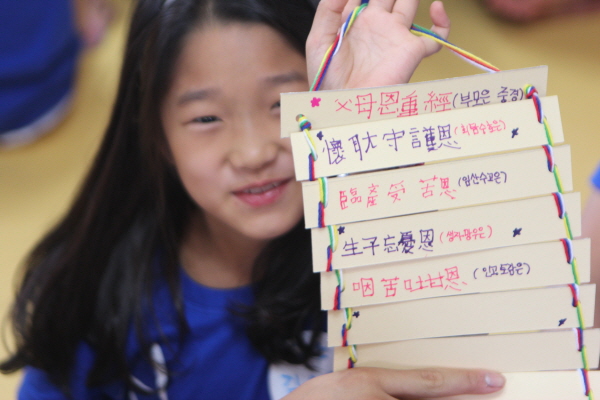 父母恩重經(부모은 중경)
懷耽守護恩(회탐수호은)
臨產受苦恩(임산수고은)
生子忘憂恩(생자망우은)
咽苦吐甘恩(인고토감은)